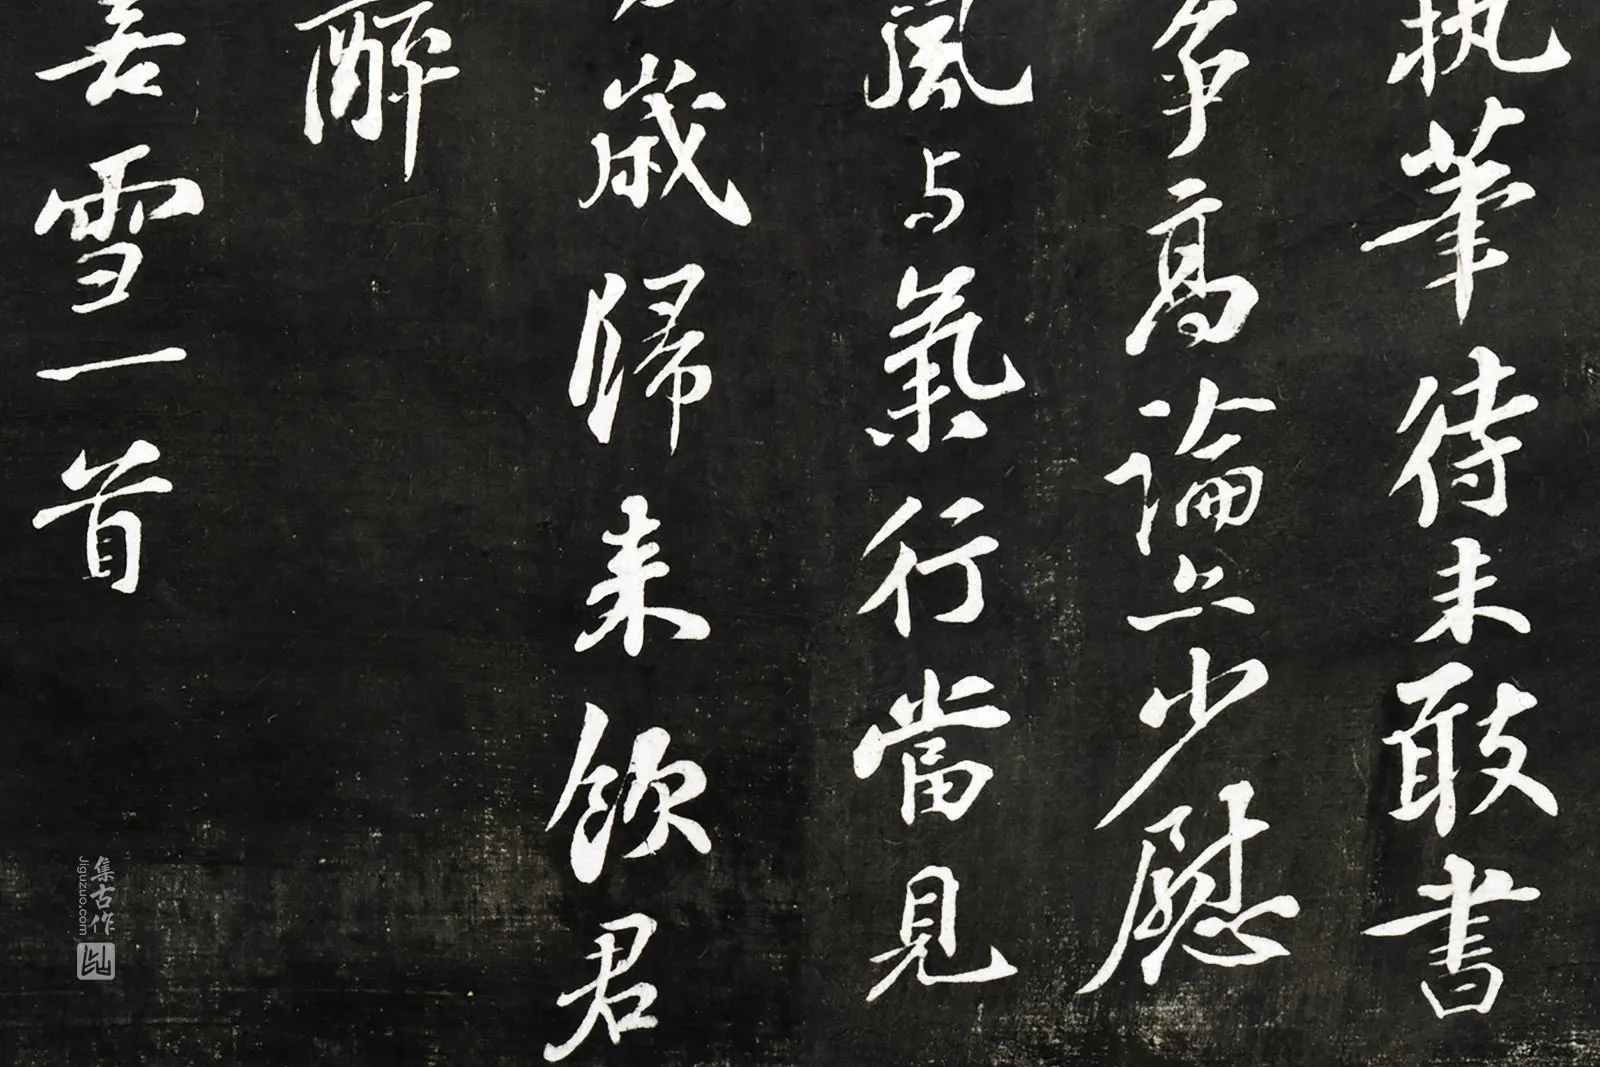 执筆待未敢書
争高論亦少慰
風与氣行當見
歲歸来飲君
醉
喜雪一首
集古作
Jiguzuo.com